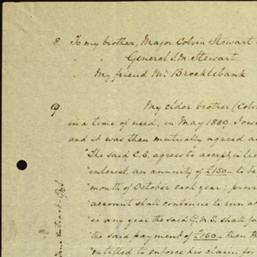 8. To my brother, Major Colvin Stewart
" General J. M. Stewart
" My friend Mr Brocklebank
9. My elder brother (Colv
in a time of need, in May 1889
and it was then mutually agreed
"The said C.S. agrees to accept in lieu
interest, an annuity of £150 to be
month of October each year; prov
account shall continue to run
or any year the said G.M.S. shall fa
the said payment of £150, then
entitled to enforce his claim for